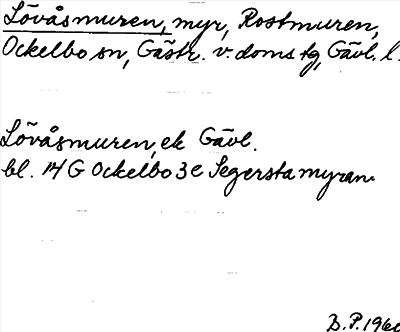 Lövåsmuren, myr, Rostmuren,
Ockelbo sn, Gästr. v. doms tg, Gävl. l.
Lövåsmuren, ek Gävl.
bl. 14 G Ockelbo 3e Segerstamyran.
B.P. 196